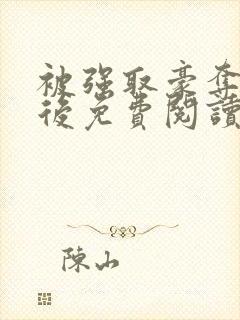 被強取豪奪
後免費閱讀
陳山